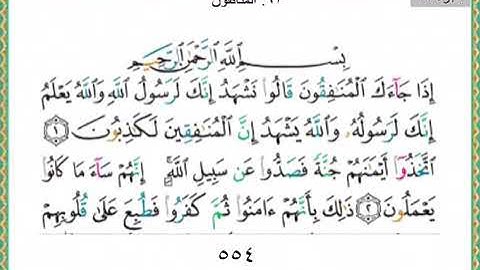 ٦٣. المنافقون
بِسْمِ ٱللَّهِ ٱلرَّحْمَٰنِ ٱلرَّحِيمِ
إِذَا جَآءَكَ ٱلْمُنَٰفِقُونَ قَالُوا۟ نَشْهَدُ إِنَّكَ لَرَسُولُ ٱللَّهِ وَٱللَّهُ يَعْلَمُ
إِنَّكَ لَرَسُولُهُۥ وَٱللَّهُ يَشْهَدُ إِنَّ ٱلْمُنَٰفِقِينَ لَكَٰذِبُونَ ١
ٱتَّخَذُوٓا۟ أَيْمَٰنَهُمْ جُنَّةً فَصَدُّوا۟ عَن سَبِيلِ ٱللَّهِ ۚ إِنَّهُمْ سَآءَ مَا كَانُوا۟
يَعْمَلُونَ ٢ ذَٰلِكَ بِأَنَّهُمْ ءَامَنُوا۟ ثُمَّ كَفَرُوا۟ فَطُبِعَ عَلَىٰ قُلُوبِهِمْ
٥٥٤